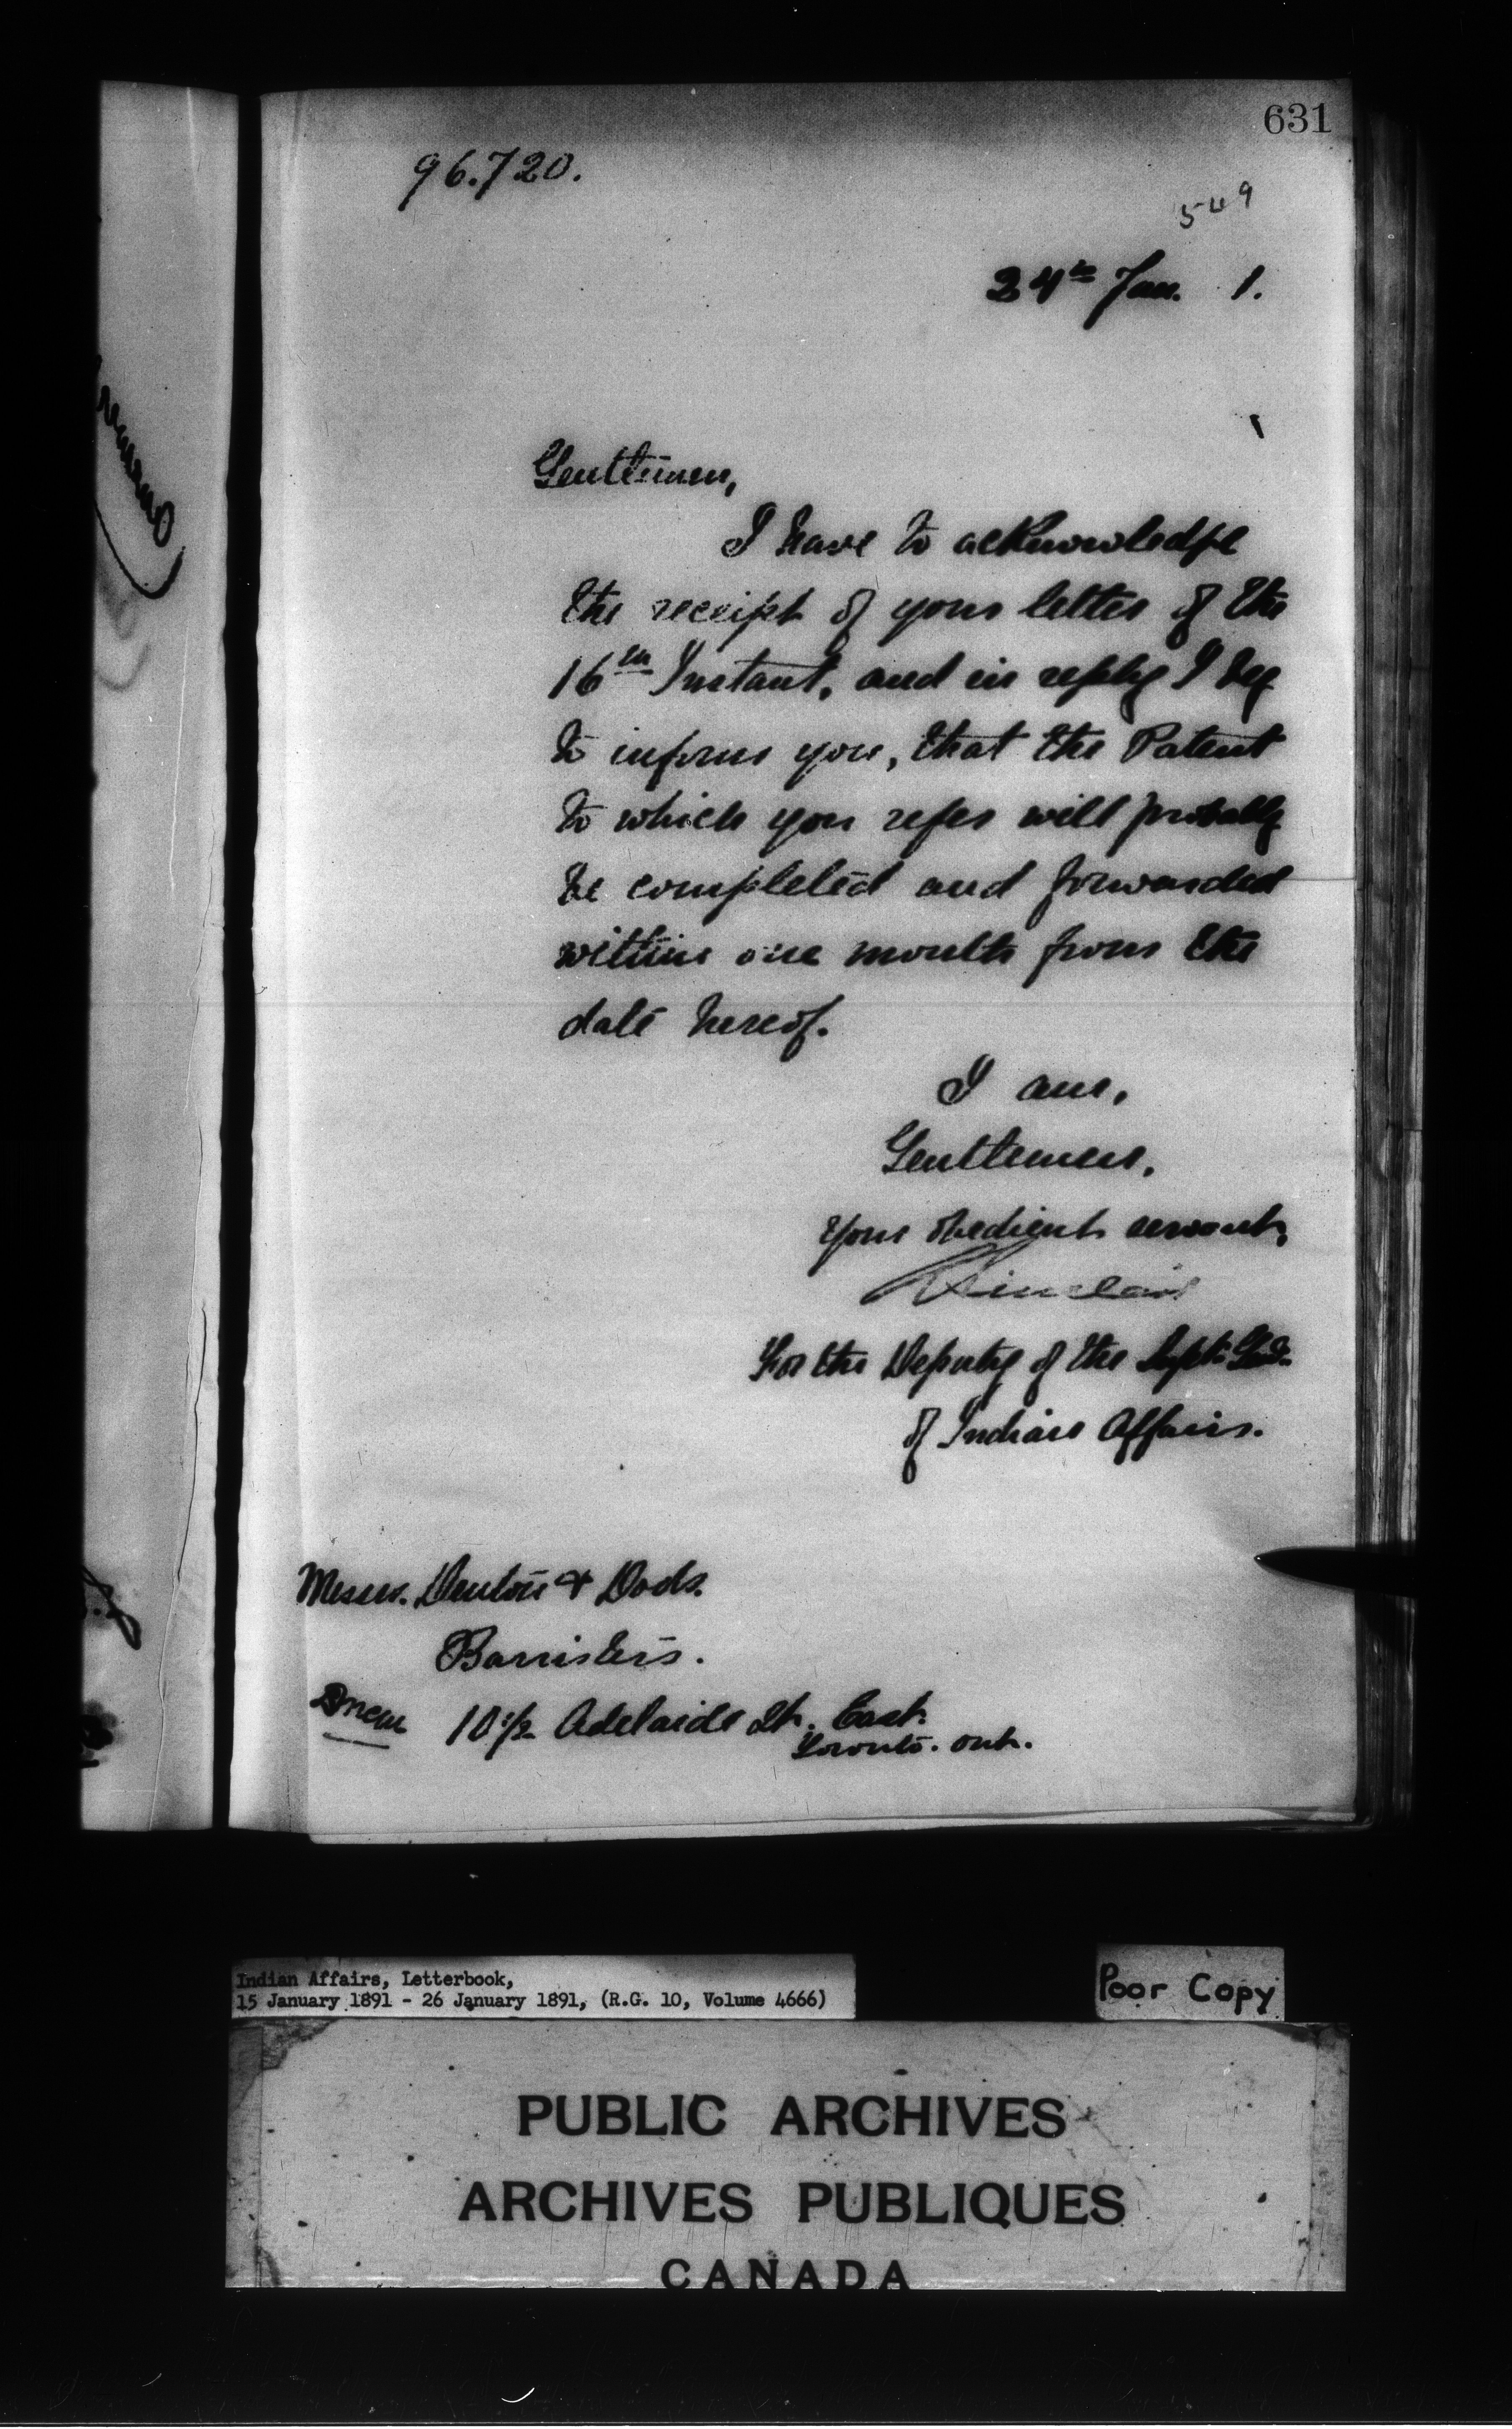 631
96.720.
549
24th Jan. 1.
Gentlemen,
I have to acknowledge
the receipt of your letter of the
16th Instant, and in reply I beg
to inform you, that the Patent
to which you refer will probably
be completed and forwarded
within one month from the
date hereof.
I am,
Gentlemen,
Your obedient servant,
Sinclair
For the Deputy of the Supt. Genl.
of Indian Affairs.
Messrs. Denton & Dods.
Barristers.
10½ Adelaide St. East.
Toronto. Ont.
Indian Affairs, Letterbook,
15 January 1891 - 26 January 1891, (R.G. 10, Volume 4666)
Poor Copy
PUBLIC ARCHIVES
ARCHIVES PUBLIQUES
CANADA